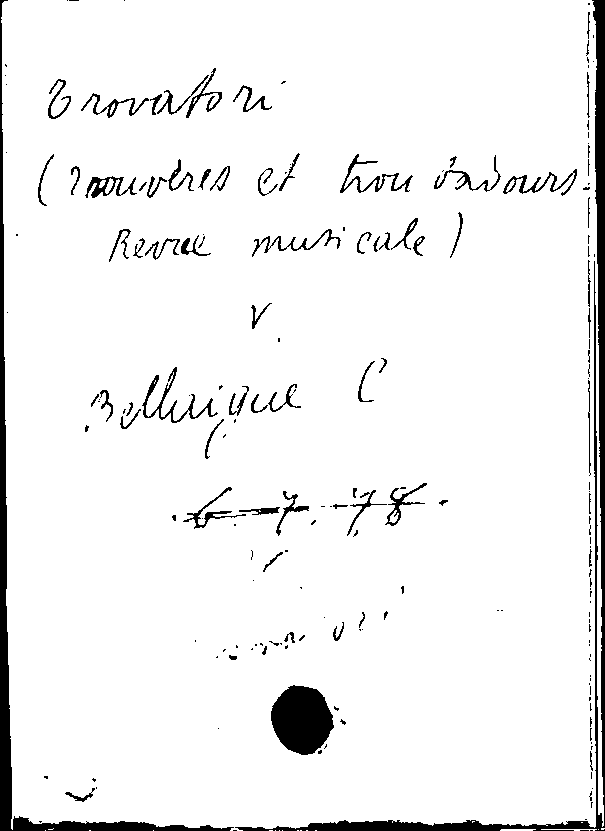 Trovatori
(Trouvères et troubadours.
Revue musicale)
v.
Bellaigue C
6.7.78.